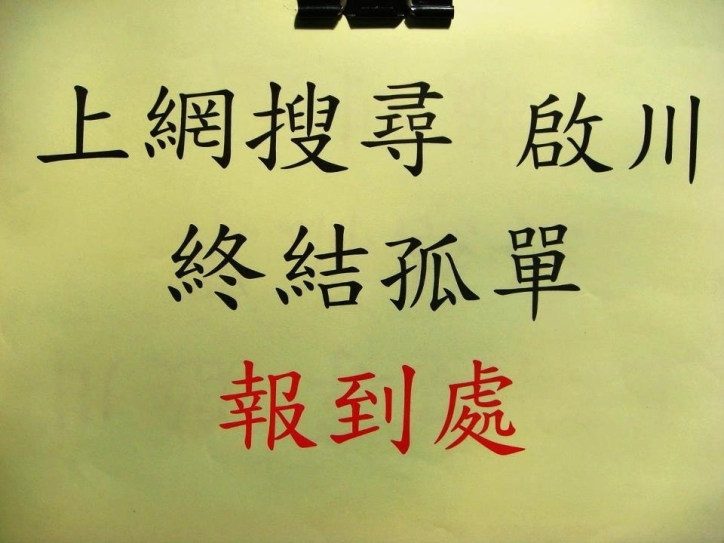 上網搜尋 啟川
終結孤單
報到處